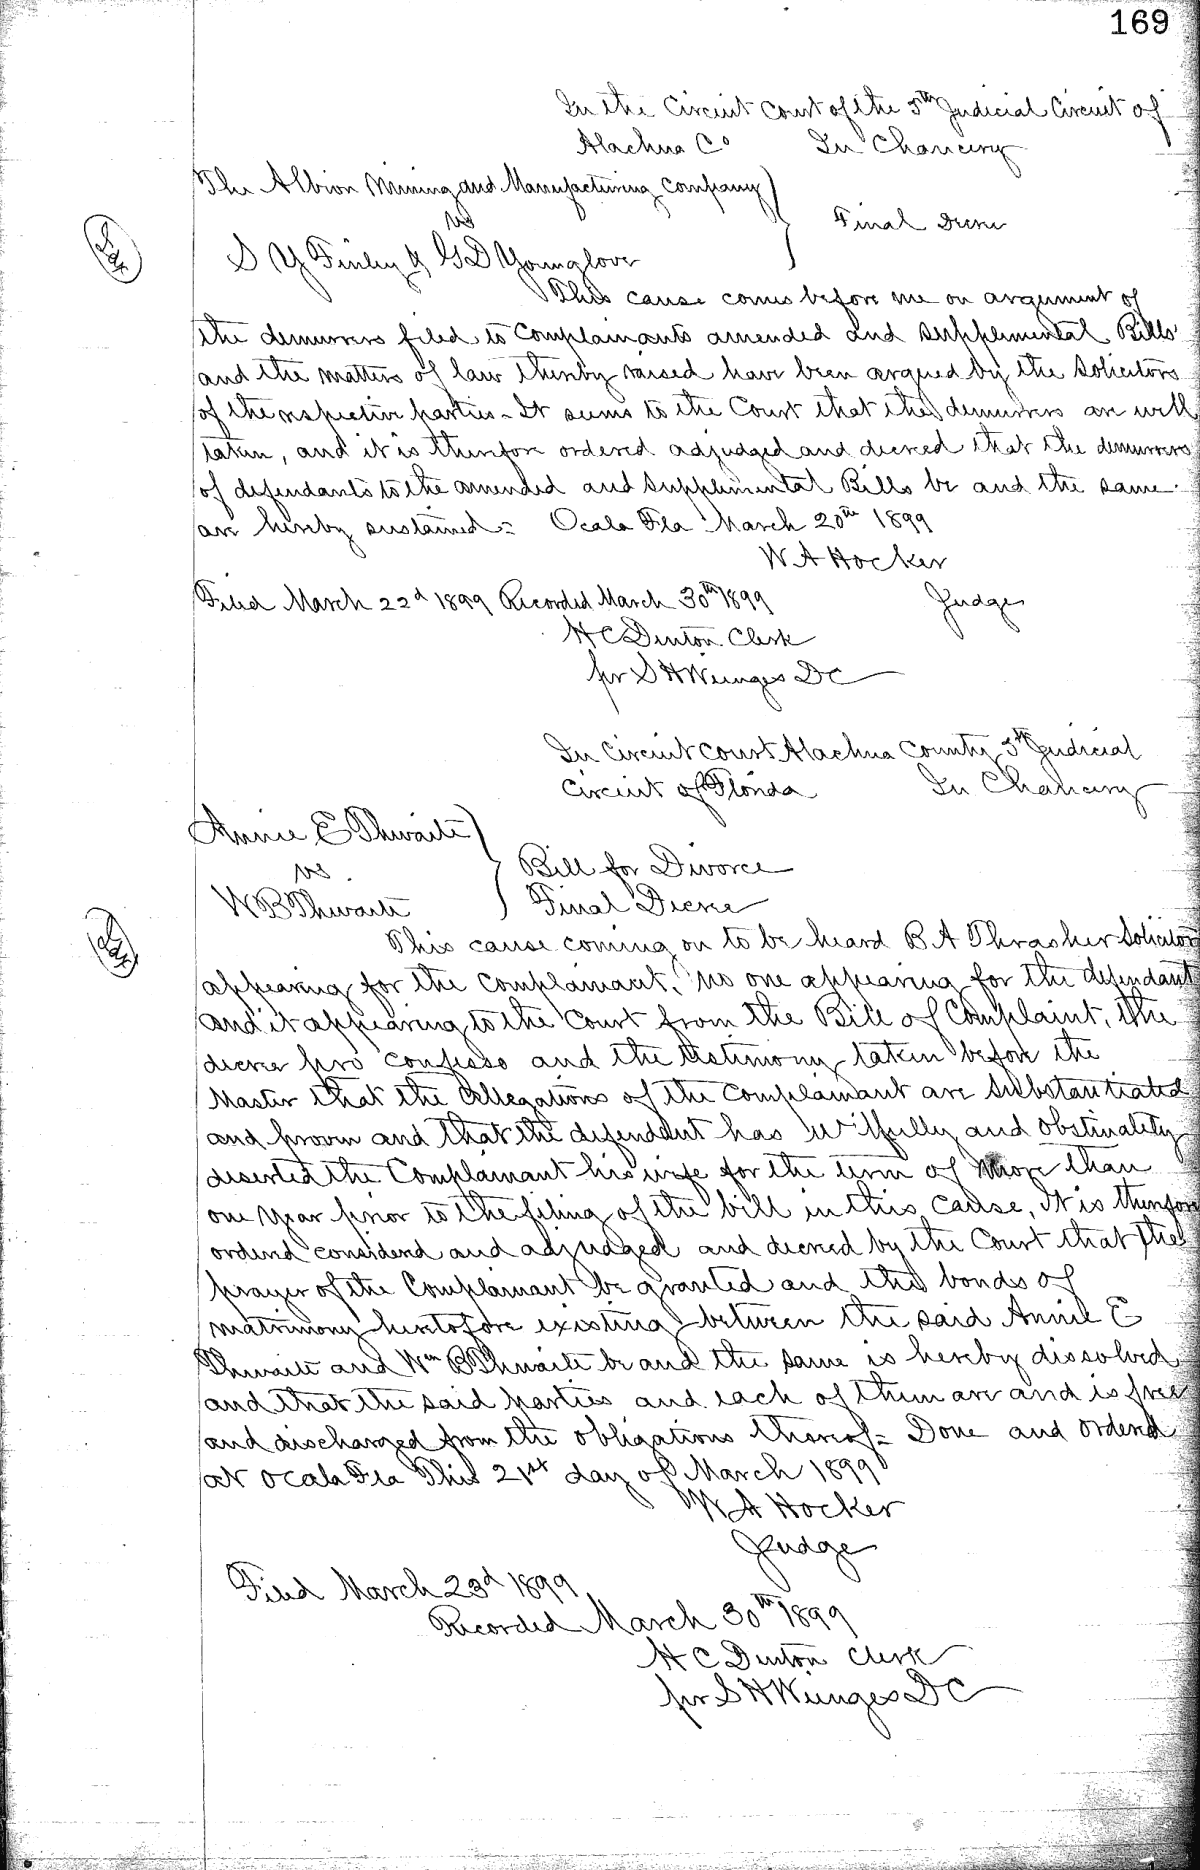 169
In the Circuit Court of the 5th Judicial Circuit of
Alachua Co In Chancery
The Albion Mining and Manufacturing Company
vs
Final Decree
S Y Finley & G D Younglove
This cause comes before me on argument of
the demurrers filed to Complainants amended and supplemental Bills
and the matters of law thereby raised have been argued by the Solicitors
of the respective parties - It seems to the Court that the demurrers are well
taken, and it is therefore ordered adjudged and decreed that the demurrers
of defendants to the amended and supplemental Bills be and the same
are hereby sustained = Ocala Fla March 20th 1899
W A Hocker
Judge
Filed March 22d 1899 Recorded March 30th 1899
H C Denton Clerk
per S H Wienges DC
In Circuit Court Alachua County 5th Judicial
Circuit of Florida In Chancery
Annie E Thwaite
vs
Bill for Divorce
W B Thwaite
Final Decree
This cause coming on to be heard B A Thrasher Solicitor
appearing for the Complainant, no one appearing for the defendant
and it appearing to the Court from the Bill of Complaint, the
decree pro confesso and the testimony taken before the
Master that the allegations of the Complainant are substantiated
and proven and that the defendant has wilfully and obstinately
deserted the Complainant his wife for the term of more than
one year prior to the filing of the bill in this cause, It is therefore
ordered considered and adjudged and decreed by the Court that the
prayer of the Complainant be granted and the bonds of
matrimony heretofore existing between the said Annie E
Thwaite and Wm B Thwaite be and the same is hereby dissolved
and that the said parties and each of them are and is free
and discharged from the obligations thereof = Done and ordered
at Ocala Fla This 21st day of March 1899
W A Hocker
Judge
Filed March 23d 1899
Recorded March 30th 1899
H C Denton Clerk
per S H Wienges DC